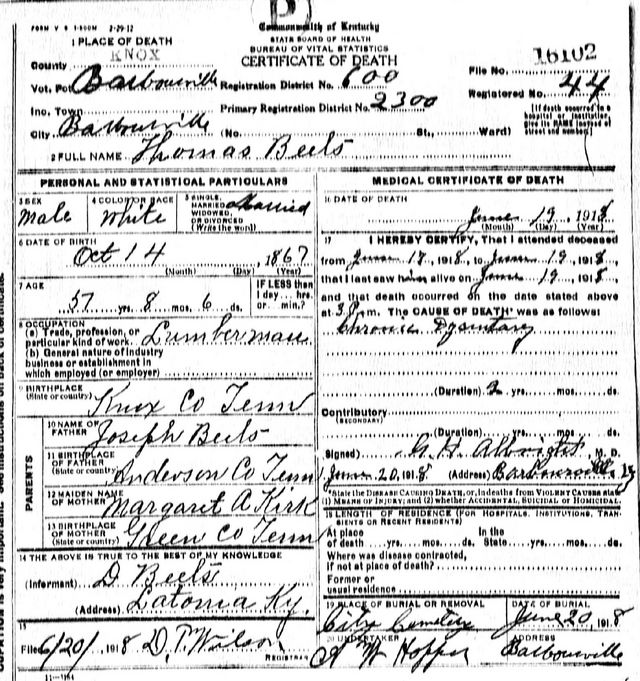 FORM V S 1-500M 2-29-12
D
Commonwealth of Kentucky
STATE BOARD OF HEALTH
BUREAU OF VITAL STATISTICS
CERTIFICATE OF DEATH
1 PLACE OF DEATH
County KNOX
Vot. Pct Barbourville
Inc. Town
City Barbourville
Registration District No. 600
Primary Registration District No. 2300
(No. St., Ward)
File No. 16102
Registered No. 44
[If death occurred in a hospital or institution, give its NAME instead of street and number.]
2 FULL NAME Thomas Beels
PERSONAL AND STATISTICAL PARTICULARS
3 SEX Male
4 COLOR OR RACE White
5 SINGLE, MARRIED, WIDOWED, OR DIVORCED (Write the word) Married
6 DATE OF BIRTH
Oct 14 1867
(Month) (Day) (Year)
7 AGE
57 yrs. 8 mos. 6 ds.
IF LESS than 1 day... hrs. or min.?
8 OCCUPATION
(a) Trade, profession, or particular kind of work Lumberman
(b) General nature of industry business or establishment in which employed (or employer)
9 BIRTHPLACE (State or country) Knox Co Tenn
PARENTS
10 NAME OF FATHER Joseph Beels
11 BIRTHPLACE OF FATHER (State or country) Anderson Co Tenn
12 MAIDEN NAME OF MOTHER Margaret A Kirk
13 BIRTHPLACE OF MOTHER (State or country) Green Co Tenn
14 THE ABOVE IS TRUE TO THE BEST OF MY KNOWLEDGE
(Informant) D. Beels
(Address) Latonia Ky.
15
Filed 6/20/ 1918 D. T. Wilson REGISTRAR
11-1164
MEDICAL CERTIFICATE OF DEATH
16 DATE OF DEATH
June 19, 1918
(Month) (Day) (Year)
17 I HEREBY CERTIFY, That I attended deceased
from June 18, 1918, to June 19, 1918,
that I last saw him alive on June 19, 1918
and that death occurred on the date stated above
at 3 P.m. The CAUSE OF DEATH* was as follows:
Chronic Dysentary
(Duration) 2 yrs. mos. ds.
Contributory
(SECONDARY)
(Duration) yrs. mos. ds.
Signed) G. H. Albright, M. D.
June 20, 1918 (Address) Barbourville Ky
*State the DISEASE CAUSING DEATH, or, in deaths from VIOLENT CAUSES state (1) MEANS OF INJURY; and (2) whether ACCIDENTAL, SUICIDAL or HOMICIDAL.
18 LENGTH OF RESIDENCE (FOR HOSPITALS, INSTITUTIONS, TRANSIENTS OR RECENT RESIDENTS)
At place of death yrs. mos. ds.
In the State yrs. mos. ds.
Where was disease contracted,
If not at place of death?
Former or usual residence
19 PLACE OF BURIAL OR REMOVAL
City Cemetery
DATE OF BURIAL
June 20, 1918
20 UNDERTAKER
A W Hopper
ADDRESS
Barbourville